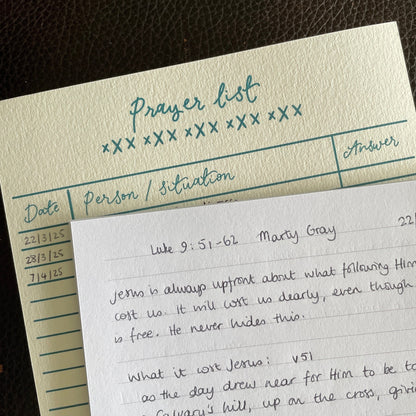 Prayer list
xXX xXX xXX xXX xXX
Date Person / situation Answer
22/3/25
28/3/25
7/4/25
Luke 9:51-62 Marty Gray 22/
Jesus is always upfront about what following Him
cost us. It will cost us dearly, even though
is free. He never hides this.
What it cost Jesus: v51
as the day drew near for Him to be to
Calvary's hill, up on the cross, givin